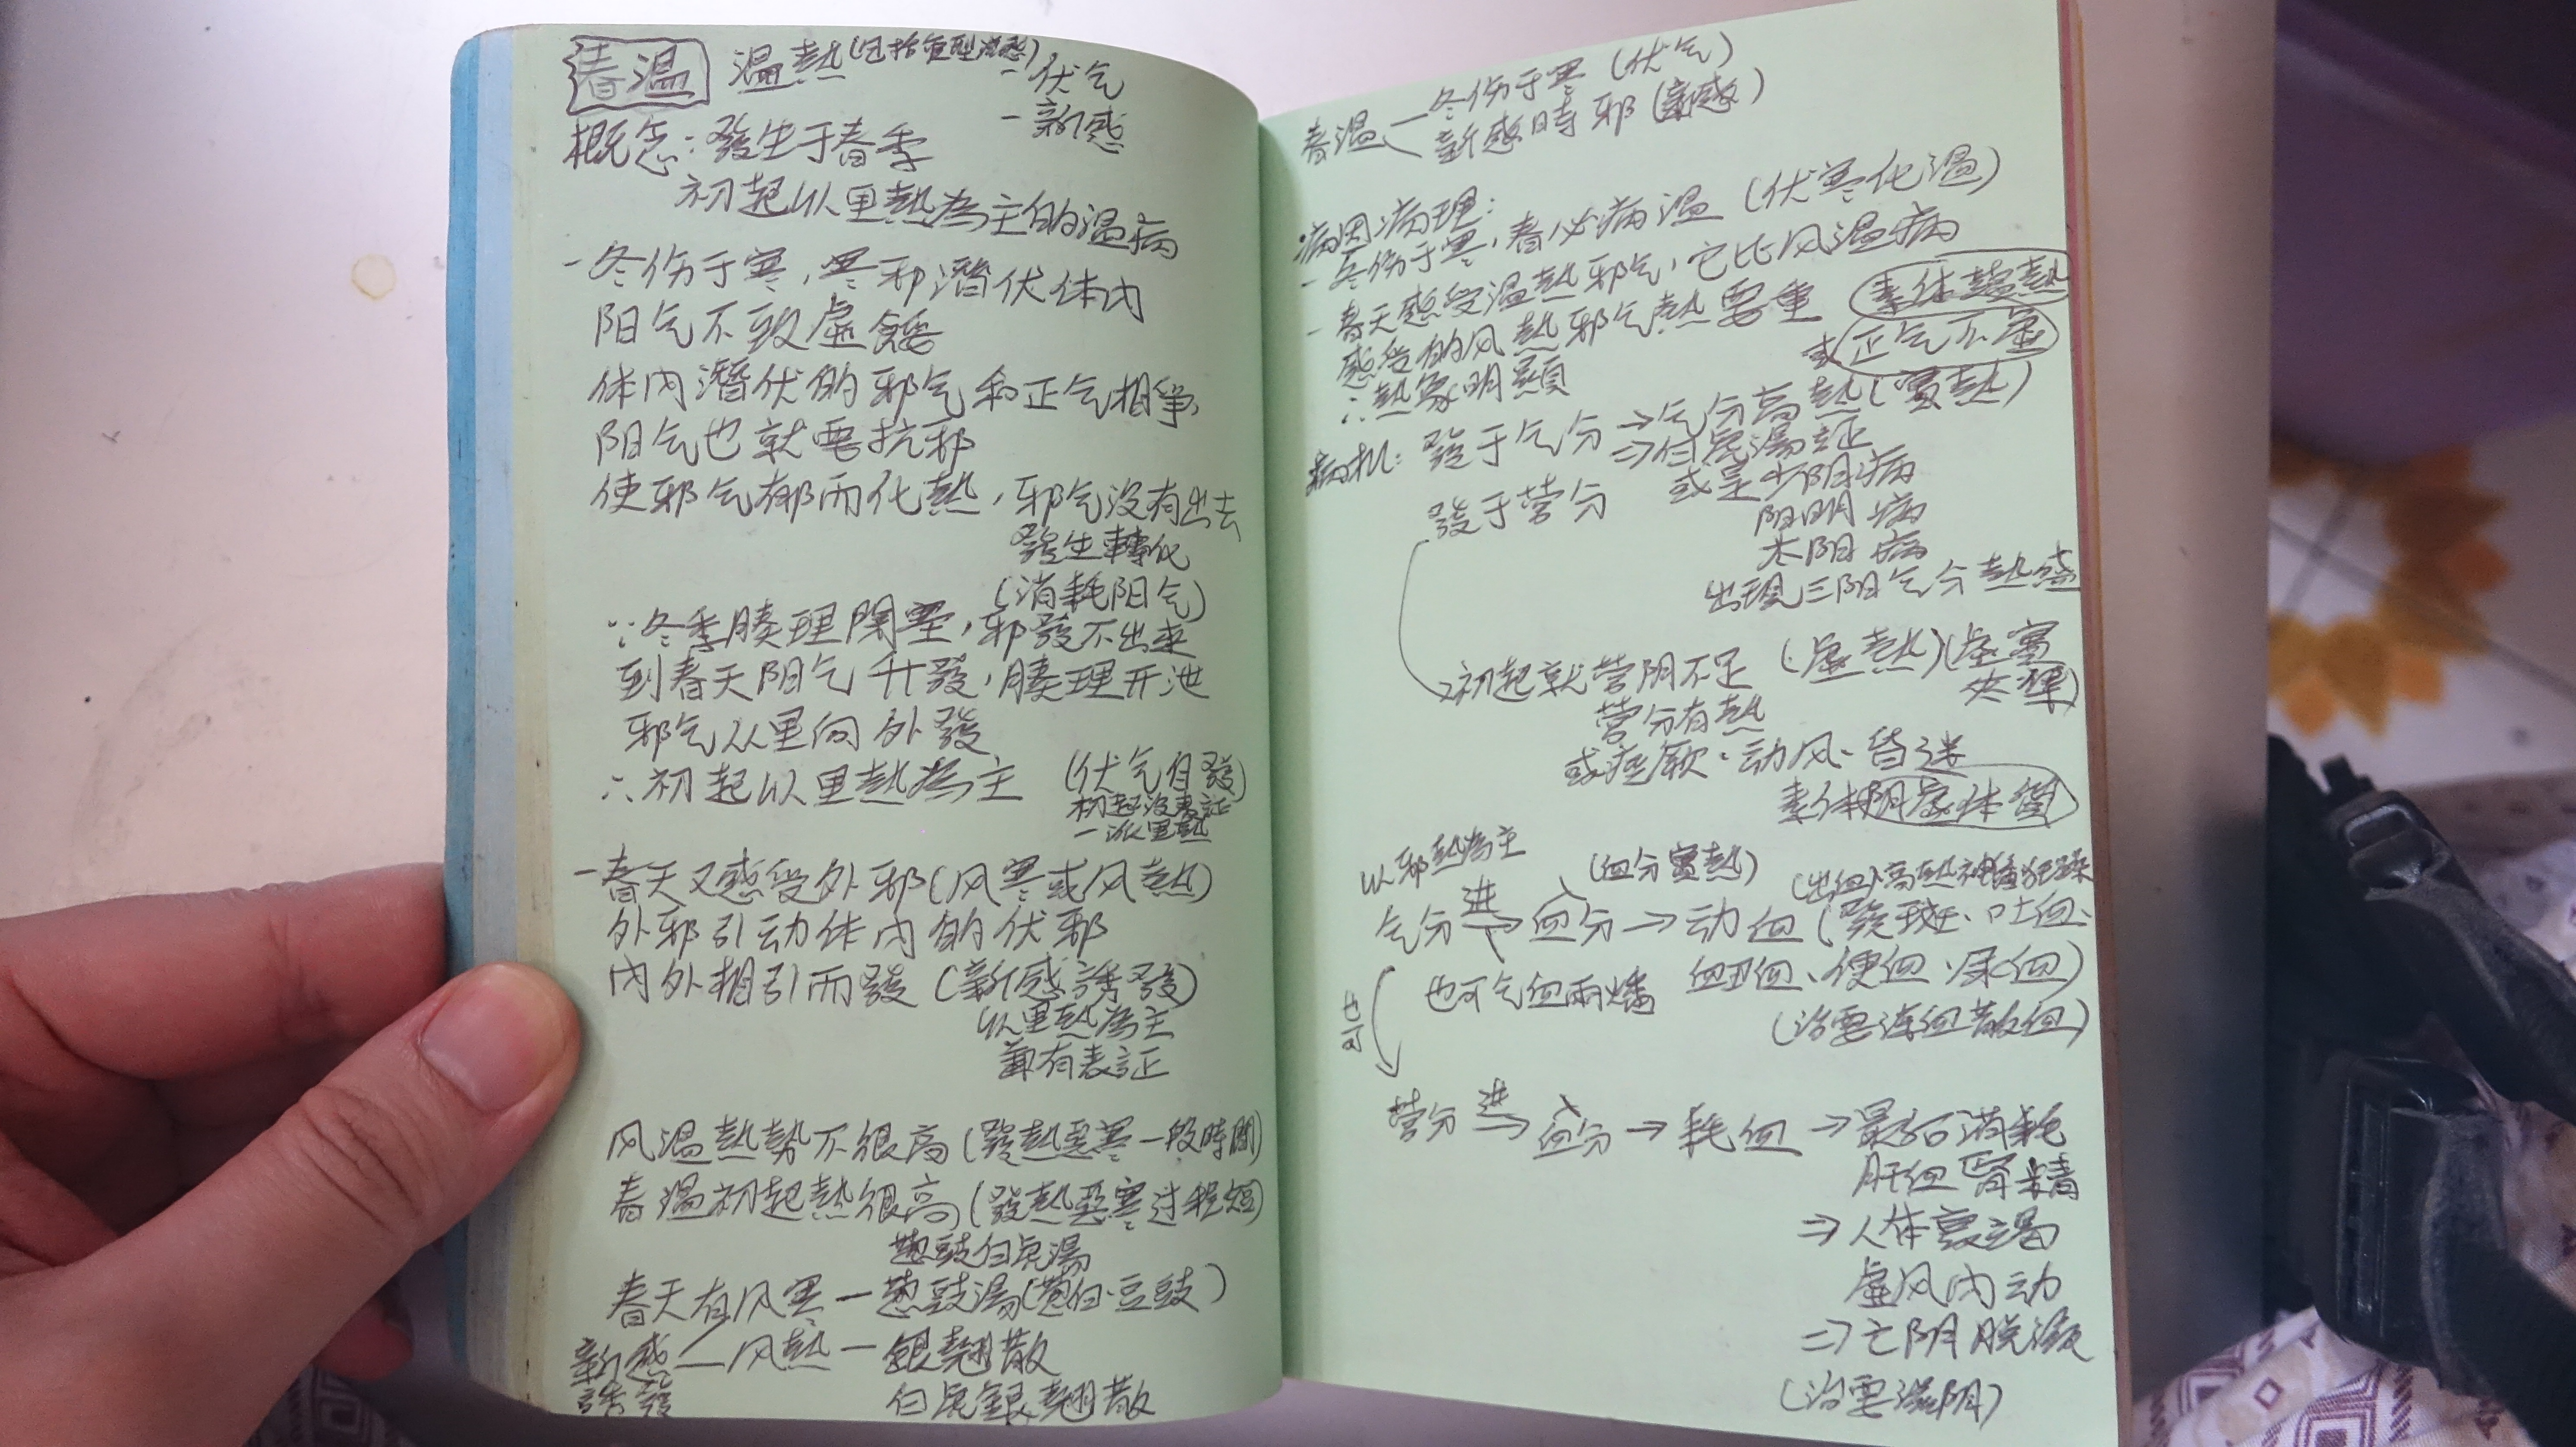 春温 温熱(包括重型流感)
-伏气
-新感
概念:發生于春季
初起以里熱為主的温病
-冬伤于寒,寒邪潛伏体内
阳气不致虛餒
体内潛伏的邪气和正气相争,
阳气也就要抗邪
使邪气郁而化熱,邪气没有出去
發生轉化
(消耗阳气)
∵冬季腠理閉塞,邪發不出来
到春天阳气升發,腠理开泄
邪气从里向外發
∴初起以里熱為主 (伏气自發)
初起没表証
一派里熱
-春天又感受外邪(风寒或风熱)
外邪引动体内的伏邪
内外相引而發(新感誘發)
以里熱為主
兼有表証
风温熱勢不很高(發熱惡寒一般時間)
春温初起熱很高(發熱惡寒过程短)
葱豉白虎湯
春天有风寒-葱豉湯(葱白·豆豉)
新感誘發 风熱-銀翹散
白虎銀翹散
春温 冬伤于寒(伏气)
新感時邪(新感)
病因病理:
-冬伤于寒,春必病温(伏寒化温)
-春天感受温熱邪气,它比风温病
感受的风熱邪气熱要重
∴熱象明顯
素体蘊熱
或正气不虛
病机:發于气分→气分高熱(實熱)
⇒白虎湯証
或是少阳病
阳明病
太阳病
出現三阳气分熱盛
發于营分
初起就营阴不足(虛熱)(虛實夾雜)
营分有熱
或痙厥·动风·昏迷
素体阴虛体質
以邪熱為主
(血分實熱)
(出血)高熱神昏狂躁
气分 进→入血分→动血(發斑·吐血、
衄血、便血、尿血)
也可气血兩燔
(治要凉血散血)
营分 进→入血分→耗血→最后消耗
肝血腎精
⇒人体衰竭
虛风内动
⇒亡阴脱液
(治要滋阴)